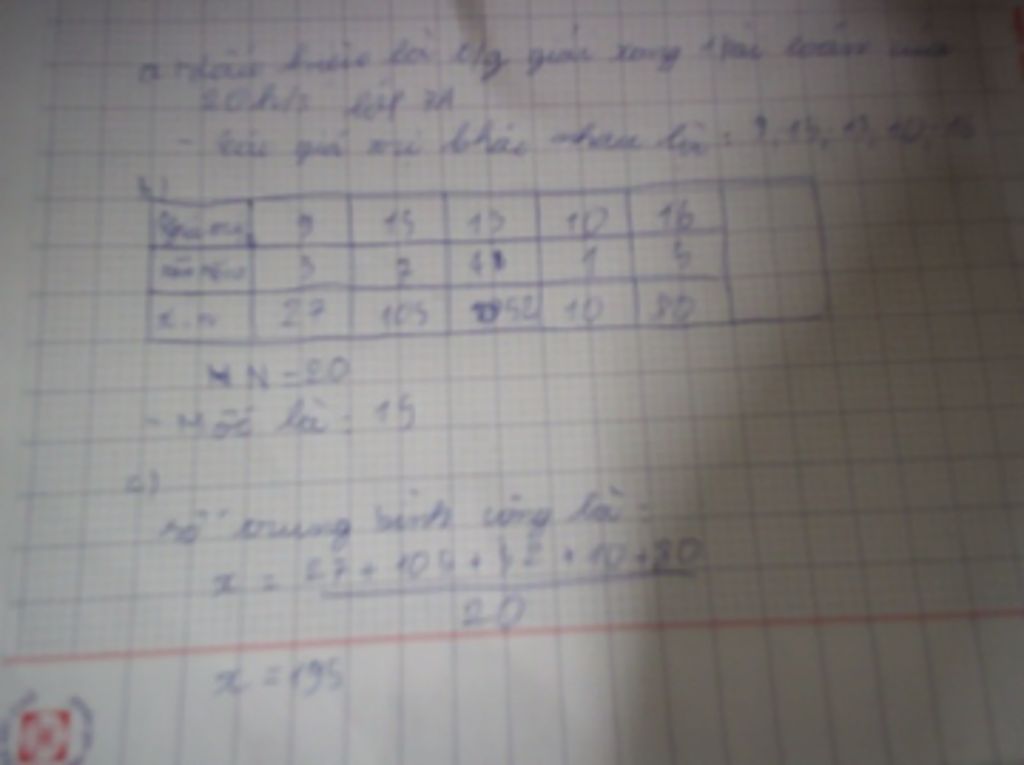 a) Dấu hiệu là t/g giải xong 1 bài toán của
20 h/s lớp 7A
- Các giá trị khác nhau là: 9, 15, 13, 10, 16
b)
Giá trị 9 15 13 10 16
3 7 4 1 5
x.n 27 105 52 10 80
N = 20
- Mốt là: 15
c)
Số trung bình cộng là:
x = 27 + 105 + 52 + 10 + 80
20
x = 195